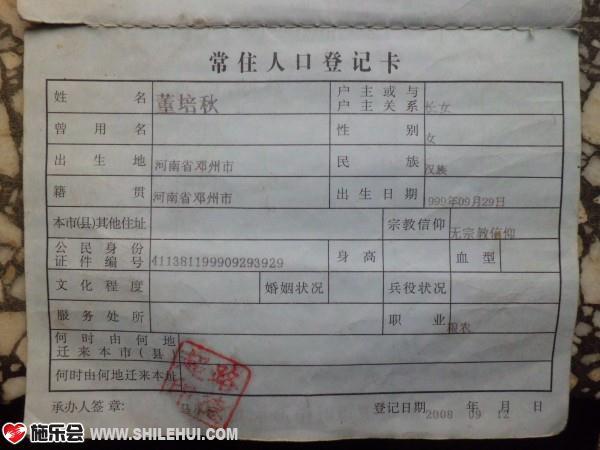 常住人口登记卡
姓名 董培秋 户主或与户主关系 长女
曾用名 性别 女
出生地 河南省邓州市 民族 汉族
籍贯 河南省邓州市 出生日期 999年09月29日
本市(县)其他住址 宗教信仰 无宗教信仰
公民身份证件编号 411381199909293929 身高 血型
文化程度 婚姻状况 兵役状况
服务处所 职业 粮农
何时由何地迁来本市(县)
何时由何地迁来本址
承办人签章: 登记日期: 2008 年 09 月 12 日
施乐会 WWW.SHILEHUI.COM